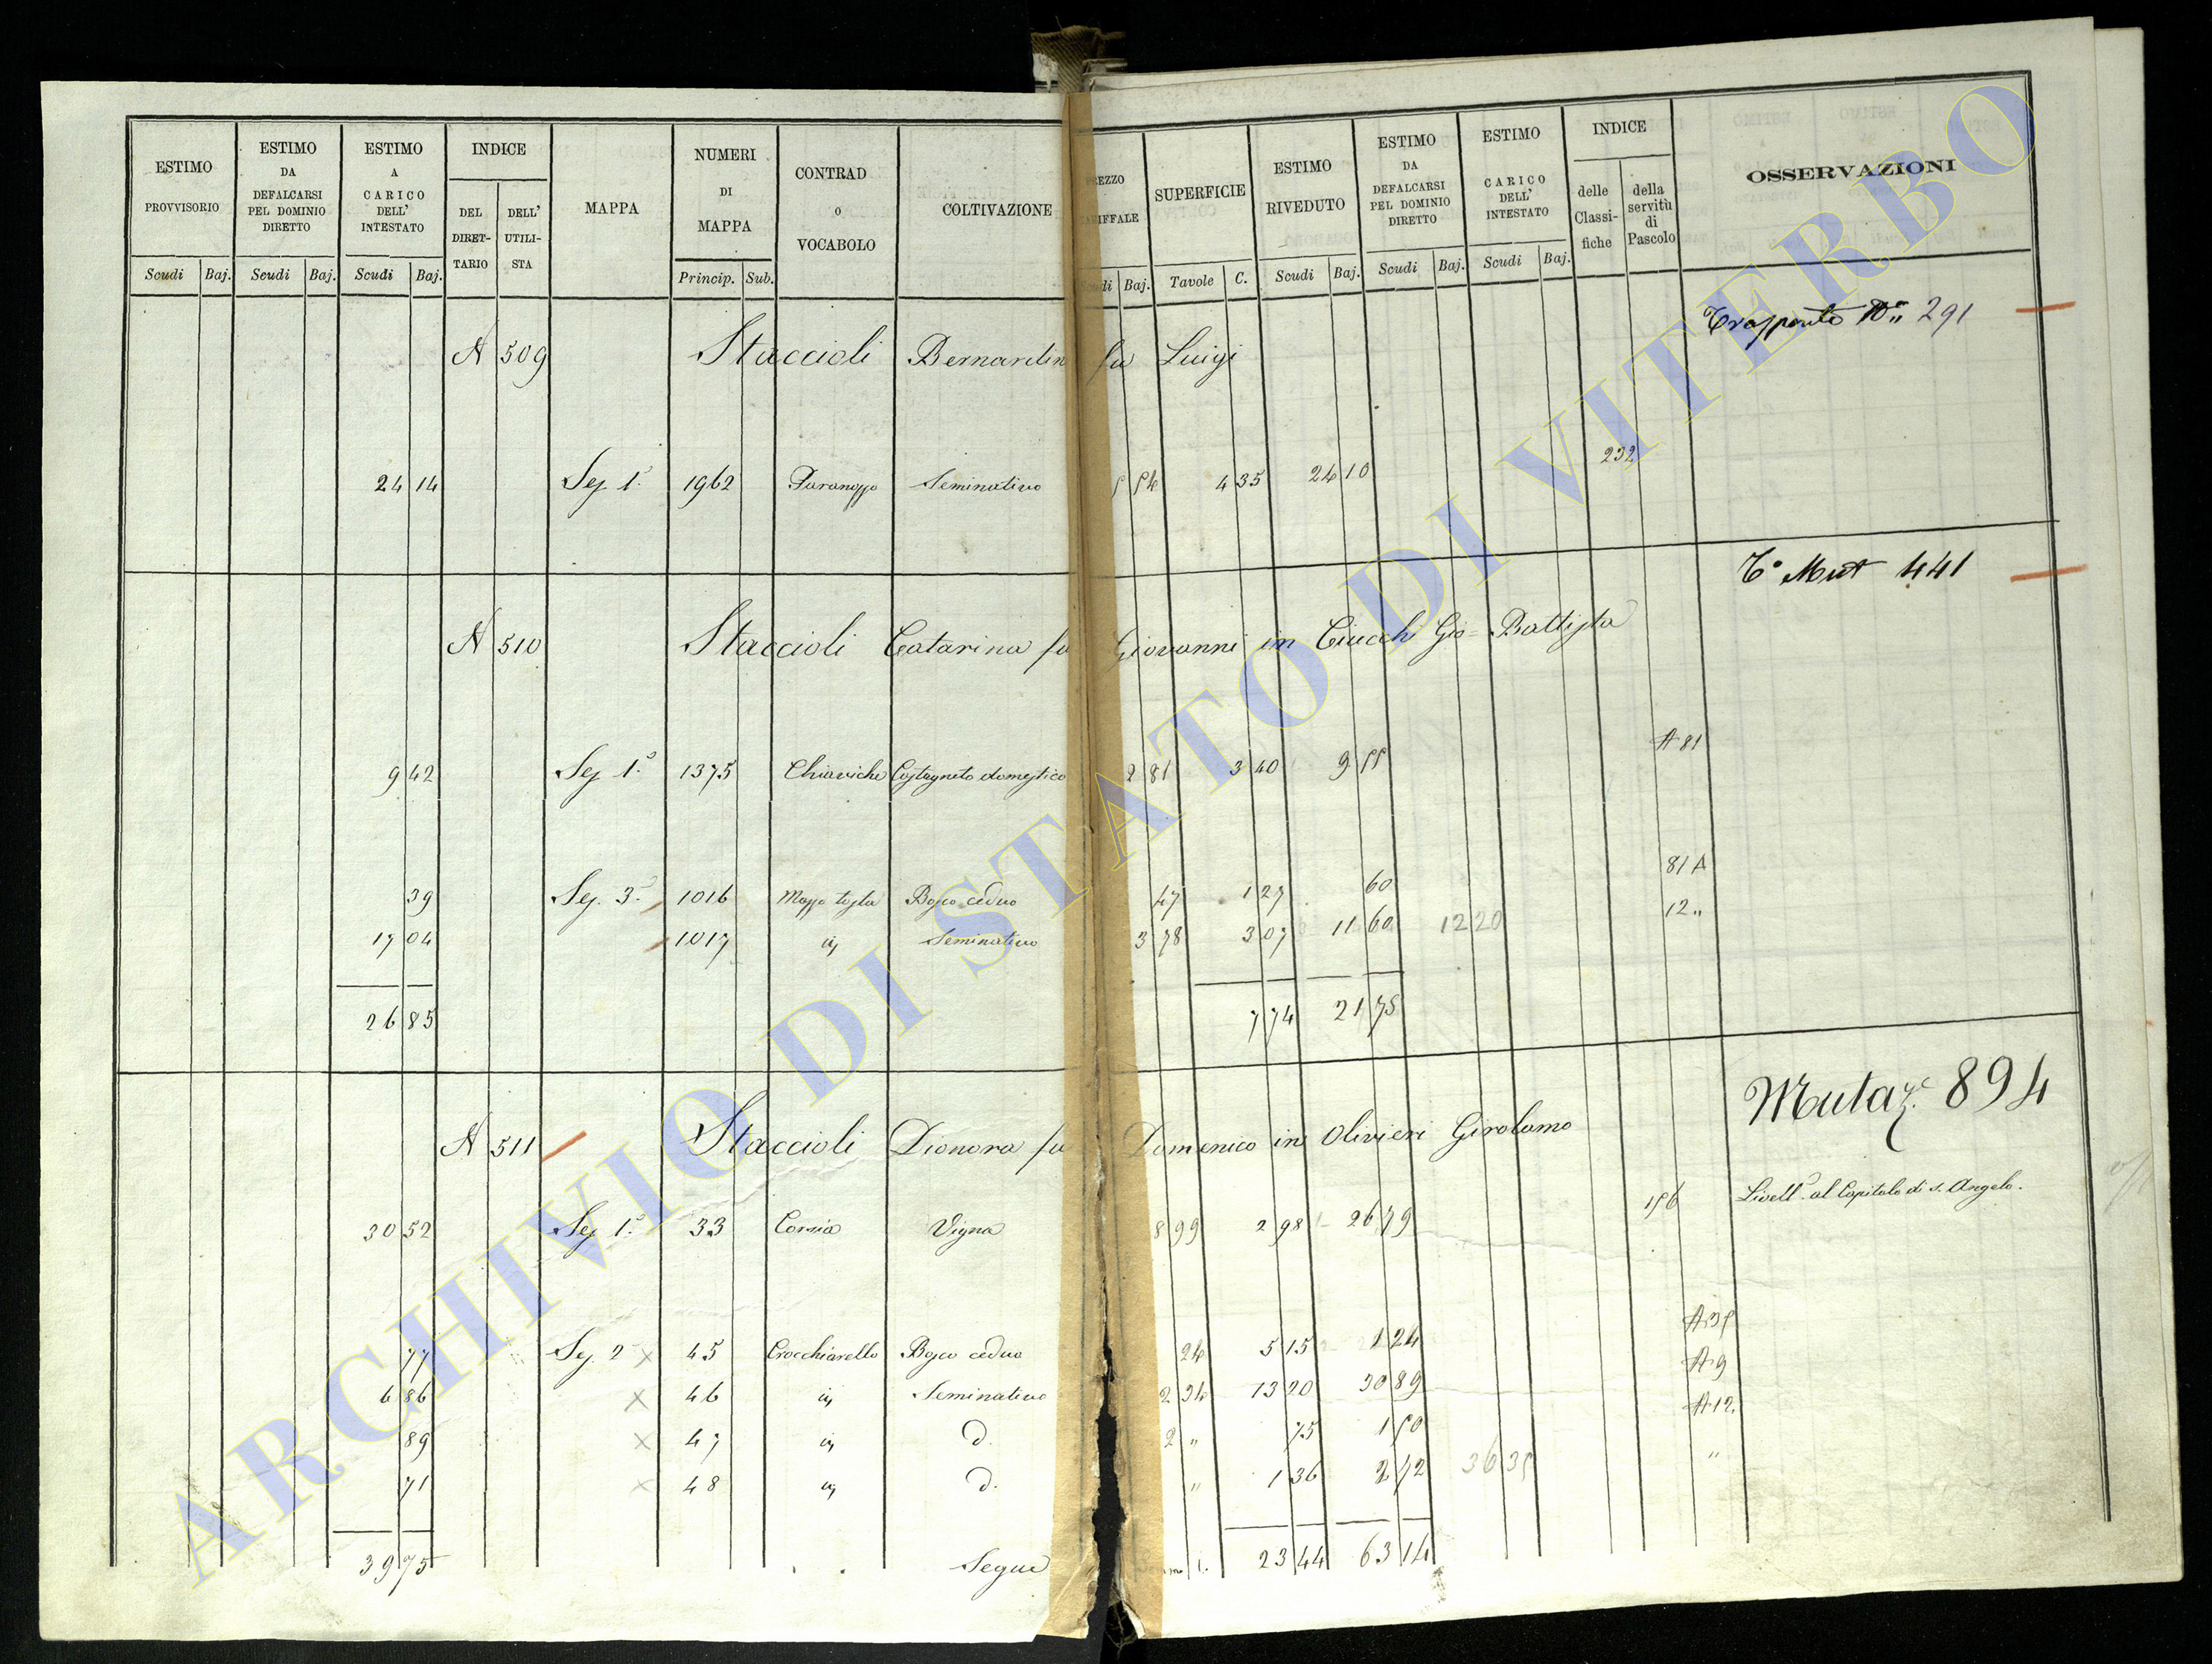 ESTIMO PROVVISORIO Scudi Baj.
ESTIMO DA DEFALCARSI PEL DOMINIO DIRETTO Scudi Baj.
ESTIMO A CARICO DELL' INTESTATO Scudi Baj.
INDICE DEL DIRET- TARIO DELL' UTILI- STA
MAPPA
NUMERI DI MAPPA Princip. Sub.
CONTRAD O VOCABOLO
COLTIVAZIONE
REZZO IFFALE di Baj.
SUPERFICIE Tavole C.
ESTIMO RIVEDUTO Scudi Baj.
ESTIMO DA DEFALCARSI PEL DOMINIO DIRETTO Scudi Baj.
ESTIMO CARICO DELL' INTESTATO Scudi Baj.
INDICE delle Classi- fiche della servitù di Pascolo
OSSERVAZIONI
Trapporto N.° 291
N 509 Staccioli Bernardin fu Luigi
24 14 Sez. 1ª 1962 Seminativo 5 54 4 35 24 10 232
T° Mut 441
N 510 Staccioli Catarina fu Giovanni in Ciucchi Gio= Battista
9 42 Sez. 1ª 1375 Chiaviche Castagneto domestico 2 81 3 40 9 55 A 81
39 Sez. 3ª 1016 Bosco ceduo 47 1 27 60 81 A
17 04 1017 Seminativo 3 78 3 07 11 60 12 20 12 "
26 85 7 74 21 75
Mutaz.e 894
N 511 Staccioli Dionora fu Domenico in Olivieri Girolamo
30 52 Sez. 1ª 33 Vigna 8 99 2 98 26 79 156 Livell.º al Capitolo di S. Angelo.
77 Sez. 2 × 45 Crocchiarello Bosco ceduo 24 5 15 1 24 A 35
6 86 × 46 Seminativo 2 34 13 20 30 89 A 9
89 × 47 d. 2 " 75 1 50 A 12
71 × 48 d. " 1 36 2 72 36 35 "
39 75 Segue 23 44 63 14
ARCHIVIO DI STATO DI VITERBO